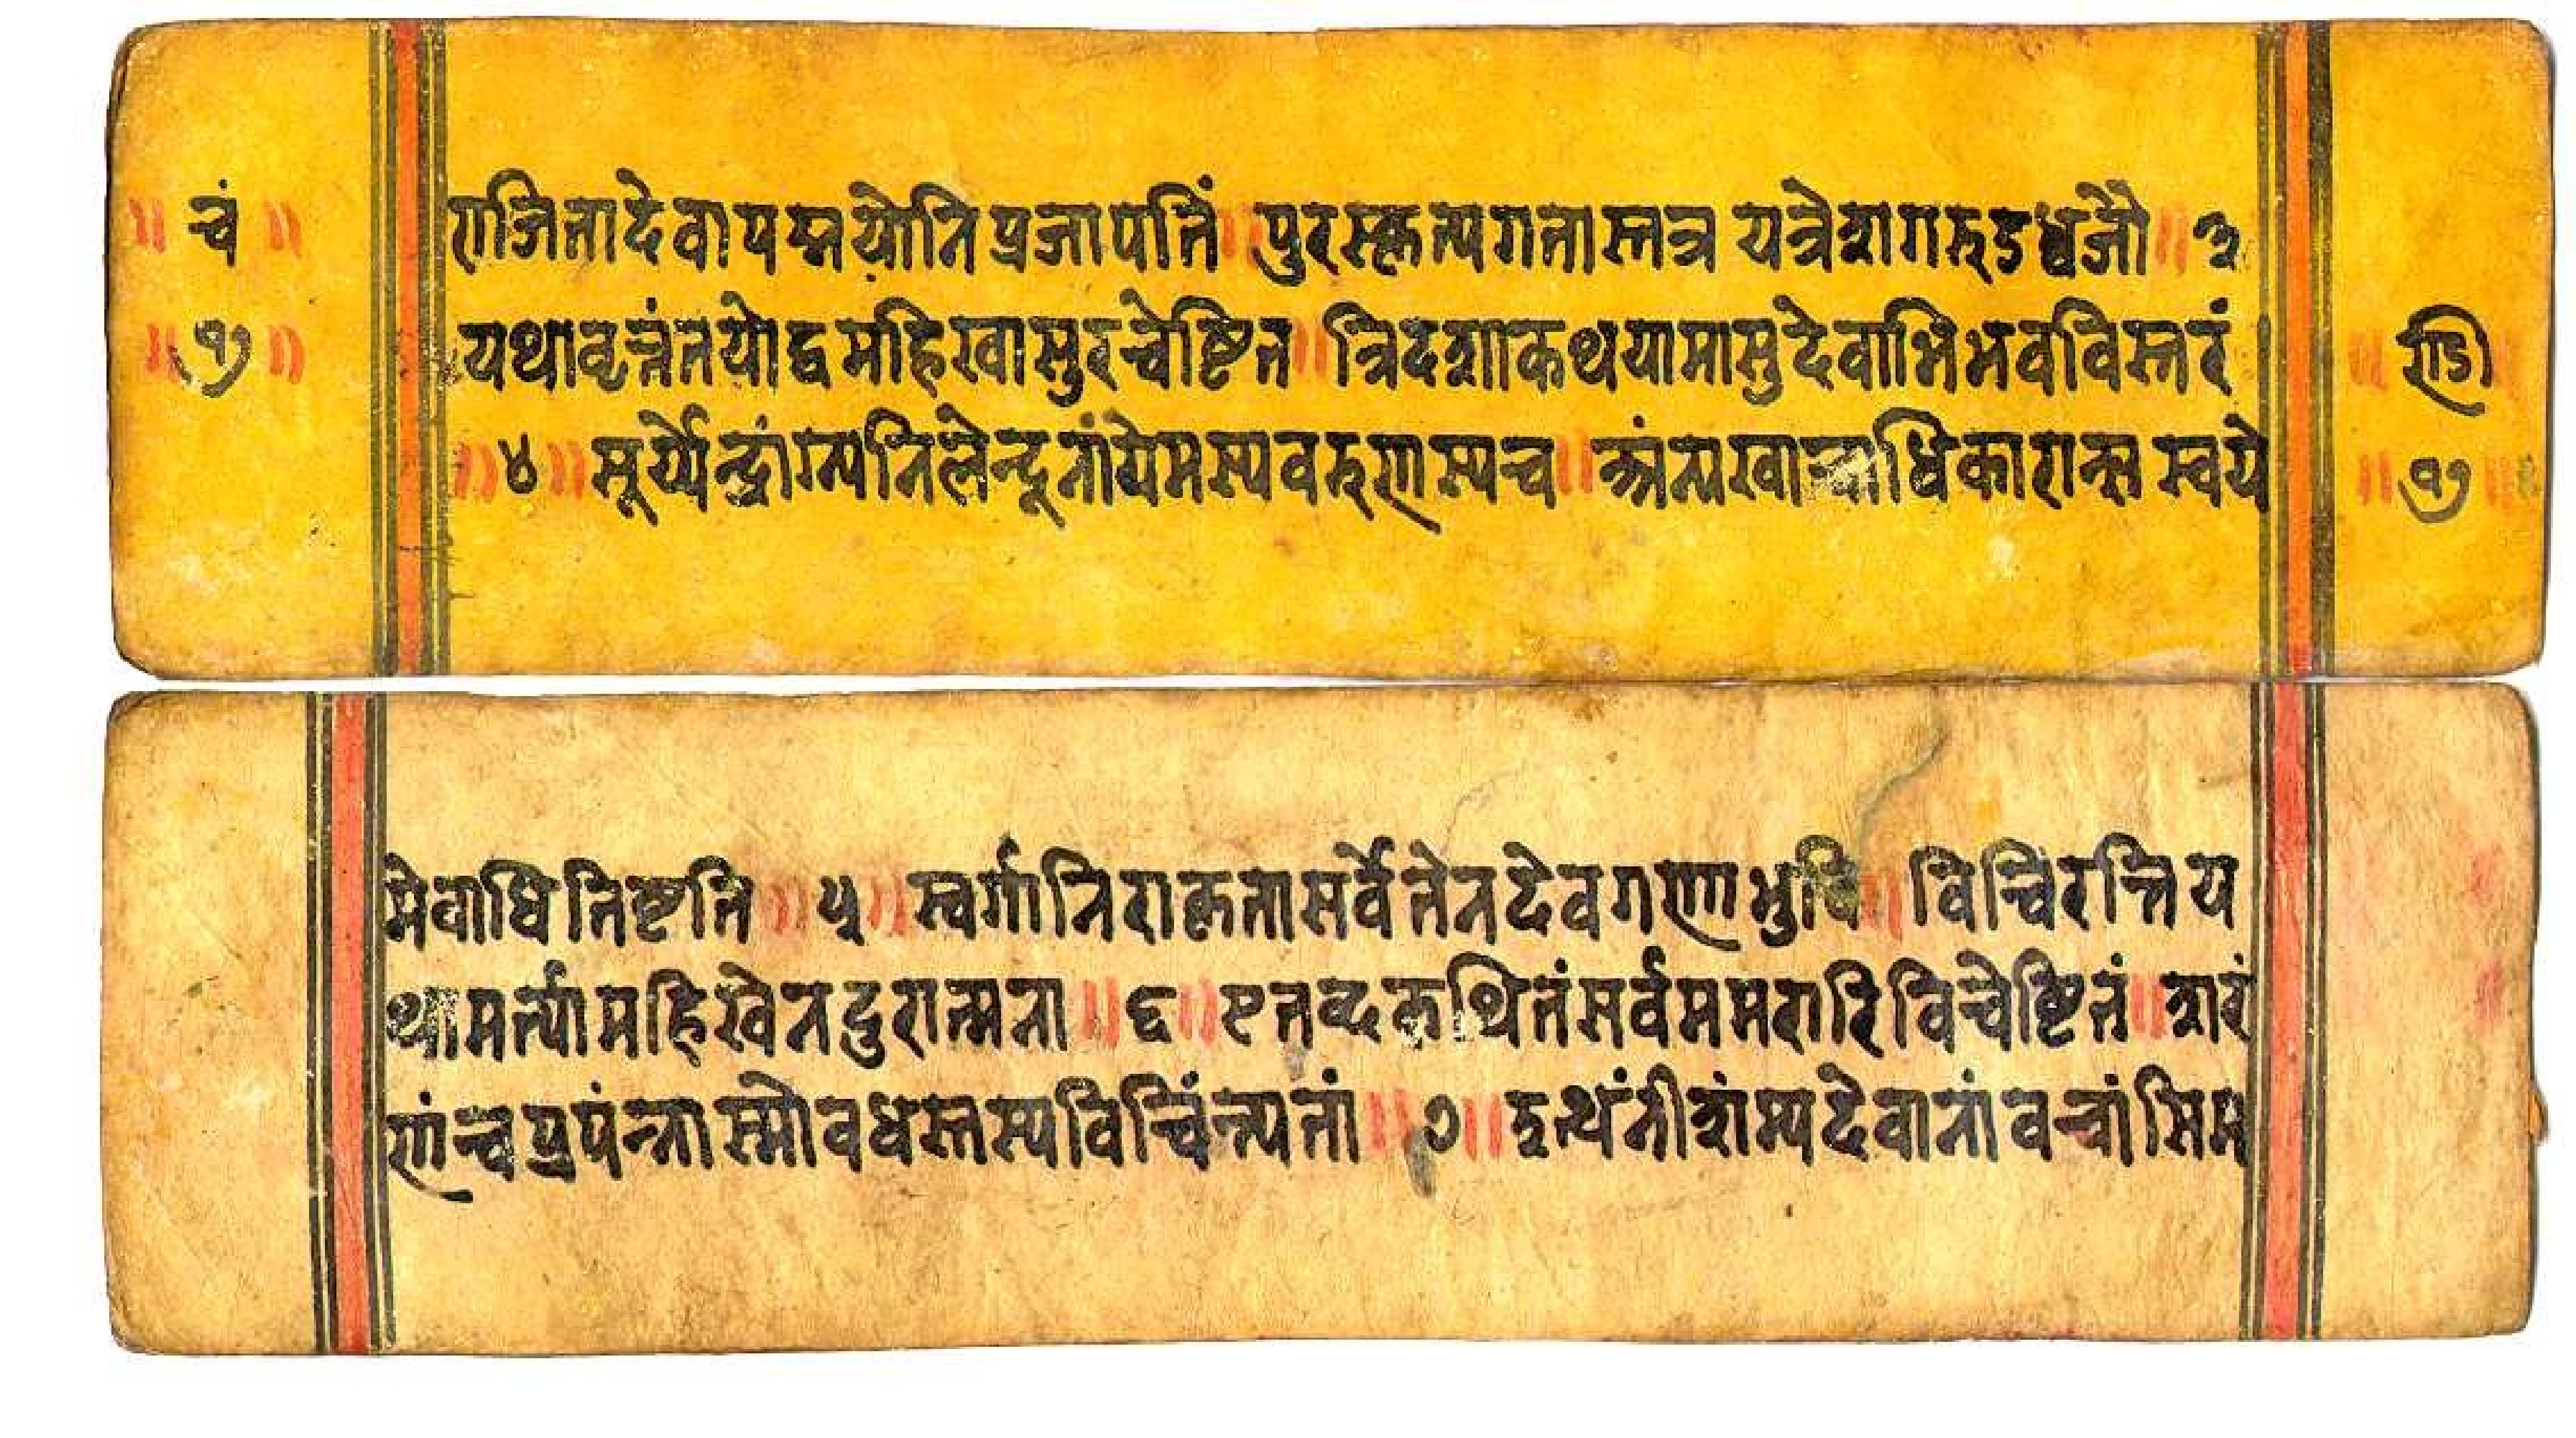 ॥ चं ॥
॥ १७ ॥
राजितादेवापद्मयोनिप्रजापतिं ॥ पुरस्कृत्यगतास्तत्र यत्रेशगरुडध्वजौ ॥ ३
यथावृत्तंतयोद्वमहिखासुरचेष्टित ॥ त्रिदशाकथयामासुदेवाभिभवविस्तरं
॥ ४ ॥ सूर्य्येन्द्राग्न्यनिलेन्दूनांयेमस्यवरुणस्यच ॥ अंन्यखाञ्चाधिकारान्स स्वये
ण्डी
॥ १७ ॥
मेवाधितिष्टति ॥ ५ ॥ स्वर्गानिराकृतासर्वेतेनदेवगणाभुवि ॥ विचिरन्तिय
थामर्त्यामहिखेनदुरात्मना ॥ ६ ॥ एतद्वकथितंसर्वममरारिविचेष्टितं ॥ शरं
णंञ्चप्रपंन्नास्मोवधस्तस्यविचिंन्त्यतां ॥ ७ ॥ इत्थंनीशंम्यदेवानांवचांसिम